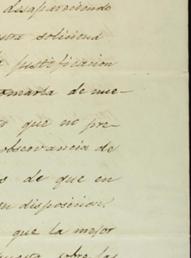 desapareciendo
solicitud
justificacion
tomarla de nue-
que no pre-
observancia de
de que en
disposicion.
que la mejor
sobre las